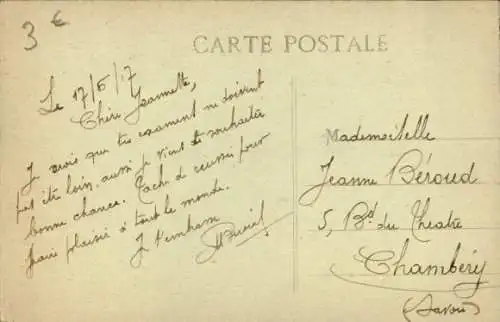 3 €
CARTE POSTALE
Le 17/6/17
Chère Jeannette,
Je crois que tes examens ne doivent
pas être loin, aussi je viens te souhaiter
bonne chance. Tâche de réussir pour
faire plaisir à tout le monde.
Je t'embrasse
Mademoiselle
Jeanne Béroud
5, Bd du Theatre
Chambéry
(Savoie)